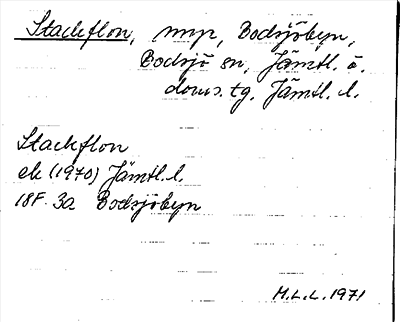 Stackflon, myr, Bodsjöbyn,
Bodsjö sn, Jämtl. ö.
doms. tg, Jämtl. l.
Stackflon
ek (1970) Jämtl. l.
18F 3a Bodsjöbyn
M.L.L. 1971